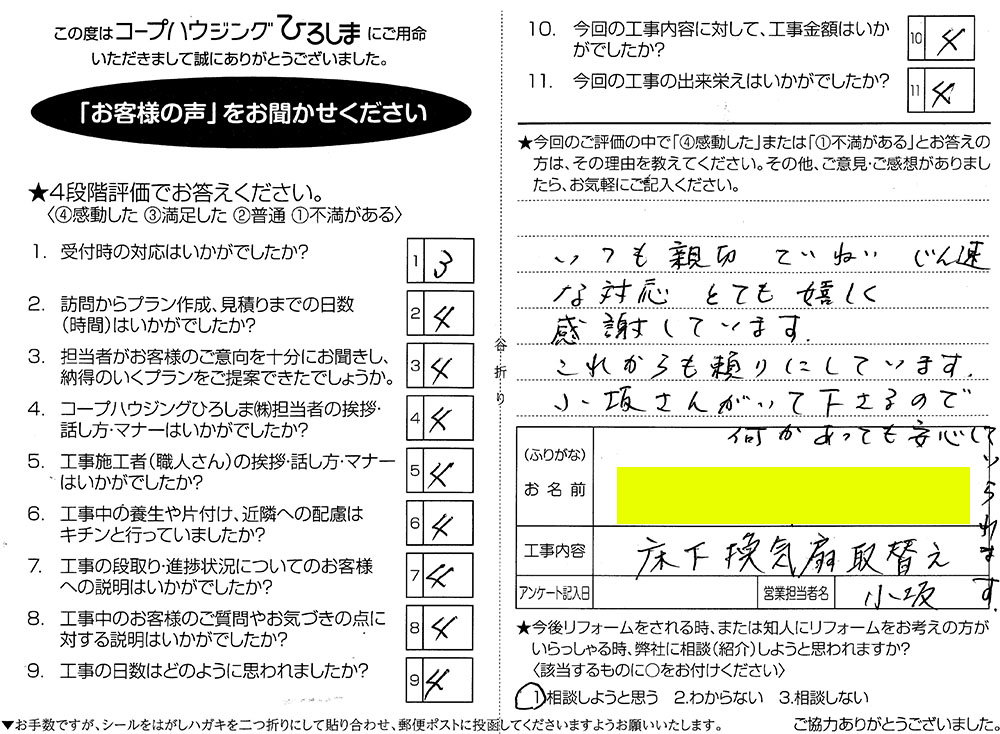 この度はコープハウジングひろしまにご用命
いただきまして誠にありがとうございました。
「お客様の声」をお聞かせください
★4段階評価でお答えください。
〈④感動した ③満足した ②普通 ①不満がある〉
1. 受付時の対応はいかがでしたか?
1 3
2. 訪問からプラン作成、見積りまでの日数
(時間)はいかがでしたか?
2 4
3. 担当者がお客様のご意向を十分にお聞きし、
納得のいくプランをご提案できたでしょうか。
3 4
4. コープハウジングひろしま㈱担当者の挨拶・
話し方・マナーはいかがでしたか?
4 4
5. 工事施工者(職人さん)の挨拶・話し方・マナー
はいかがでしたか?
5 4
6. 工事中の養生や片付け、近隣への配慮は
キチンと行っていましたか?
6 4
7. 工事の段取り・進捗状況についてのお客様
への説明はいかがでしたか?
7 4
8. 工事中のお客様のご質問やお気づきの点に
対する説明はいかがでしたか?
8 4
9. 工事の日数はどのように思われましたか?
9 4
谷折り
10. 今回の工事内容に対して、工事金額はいか
がでしたか?
10 4
11. 今回の工事の出来栄えはいかがでしたか?
11 4
★今回のご評価の中で「④感動した」または「①不満がある」とお答えの
方は、その理由を教えてください。その他、ご意見・ご感想がありまし
たら、お気軽にご記入ください。
いつも親切 ていねい じん速
な対応 とても嬉しく
感謝しています.
これからも頼りにしています.
小坂さんがいて下さるので
何かあっても安心して
いられます.
(ふりがな)
お名前
工事内容 床下換気扇取替え
アンケート記入日 営業担当者名 小坂
★今後リフォームをされる時、または知人にリフォームをお考えの方が
いらっしゃる時、弊社に相談(紹介)しようと思われますか?
〈該当するものに○をお付けください〉
1.相談しようと思う 2.わからない 3.相談しない
▼お手数ですが、シールをはがしハガキを二つ折りにして貼り合わせ、郵便ポストに投函してくださいますようお願いいたします。
ご協力ありがとうございました。